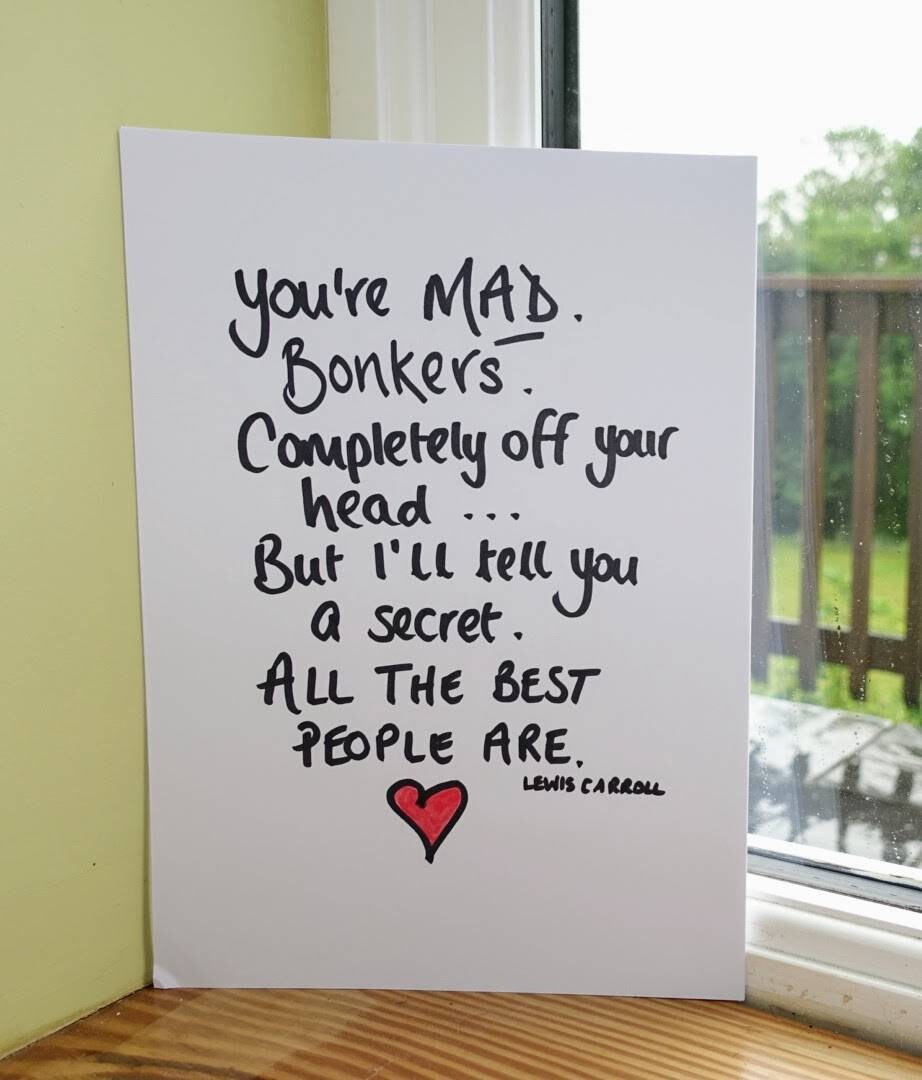 You're MAD.
Bonkers.
Completely off your
head ...
But I'll tell you
a secret.
ALL THE BEST
PEOPLE ARE.
LEWIS CARROLL